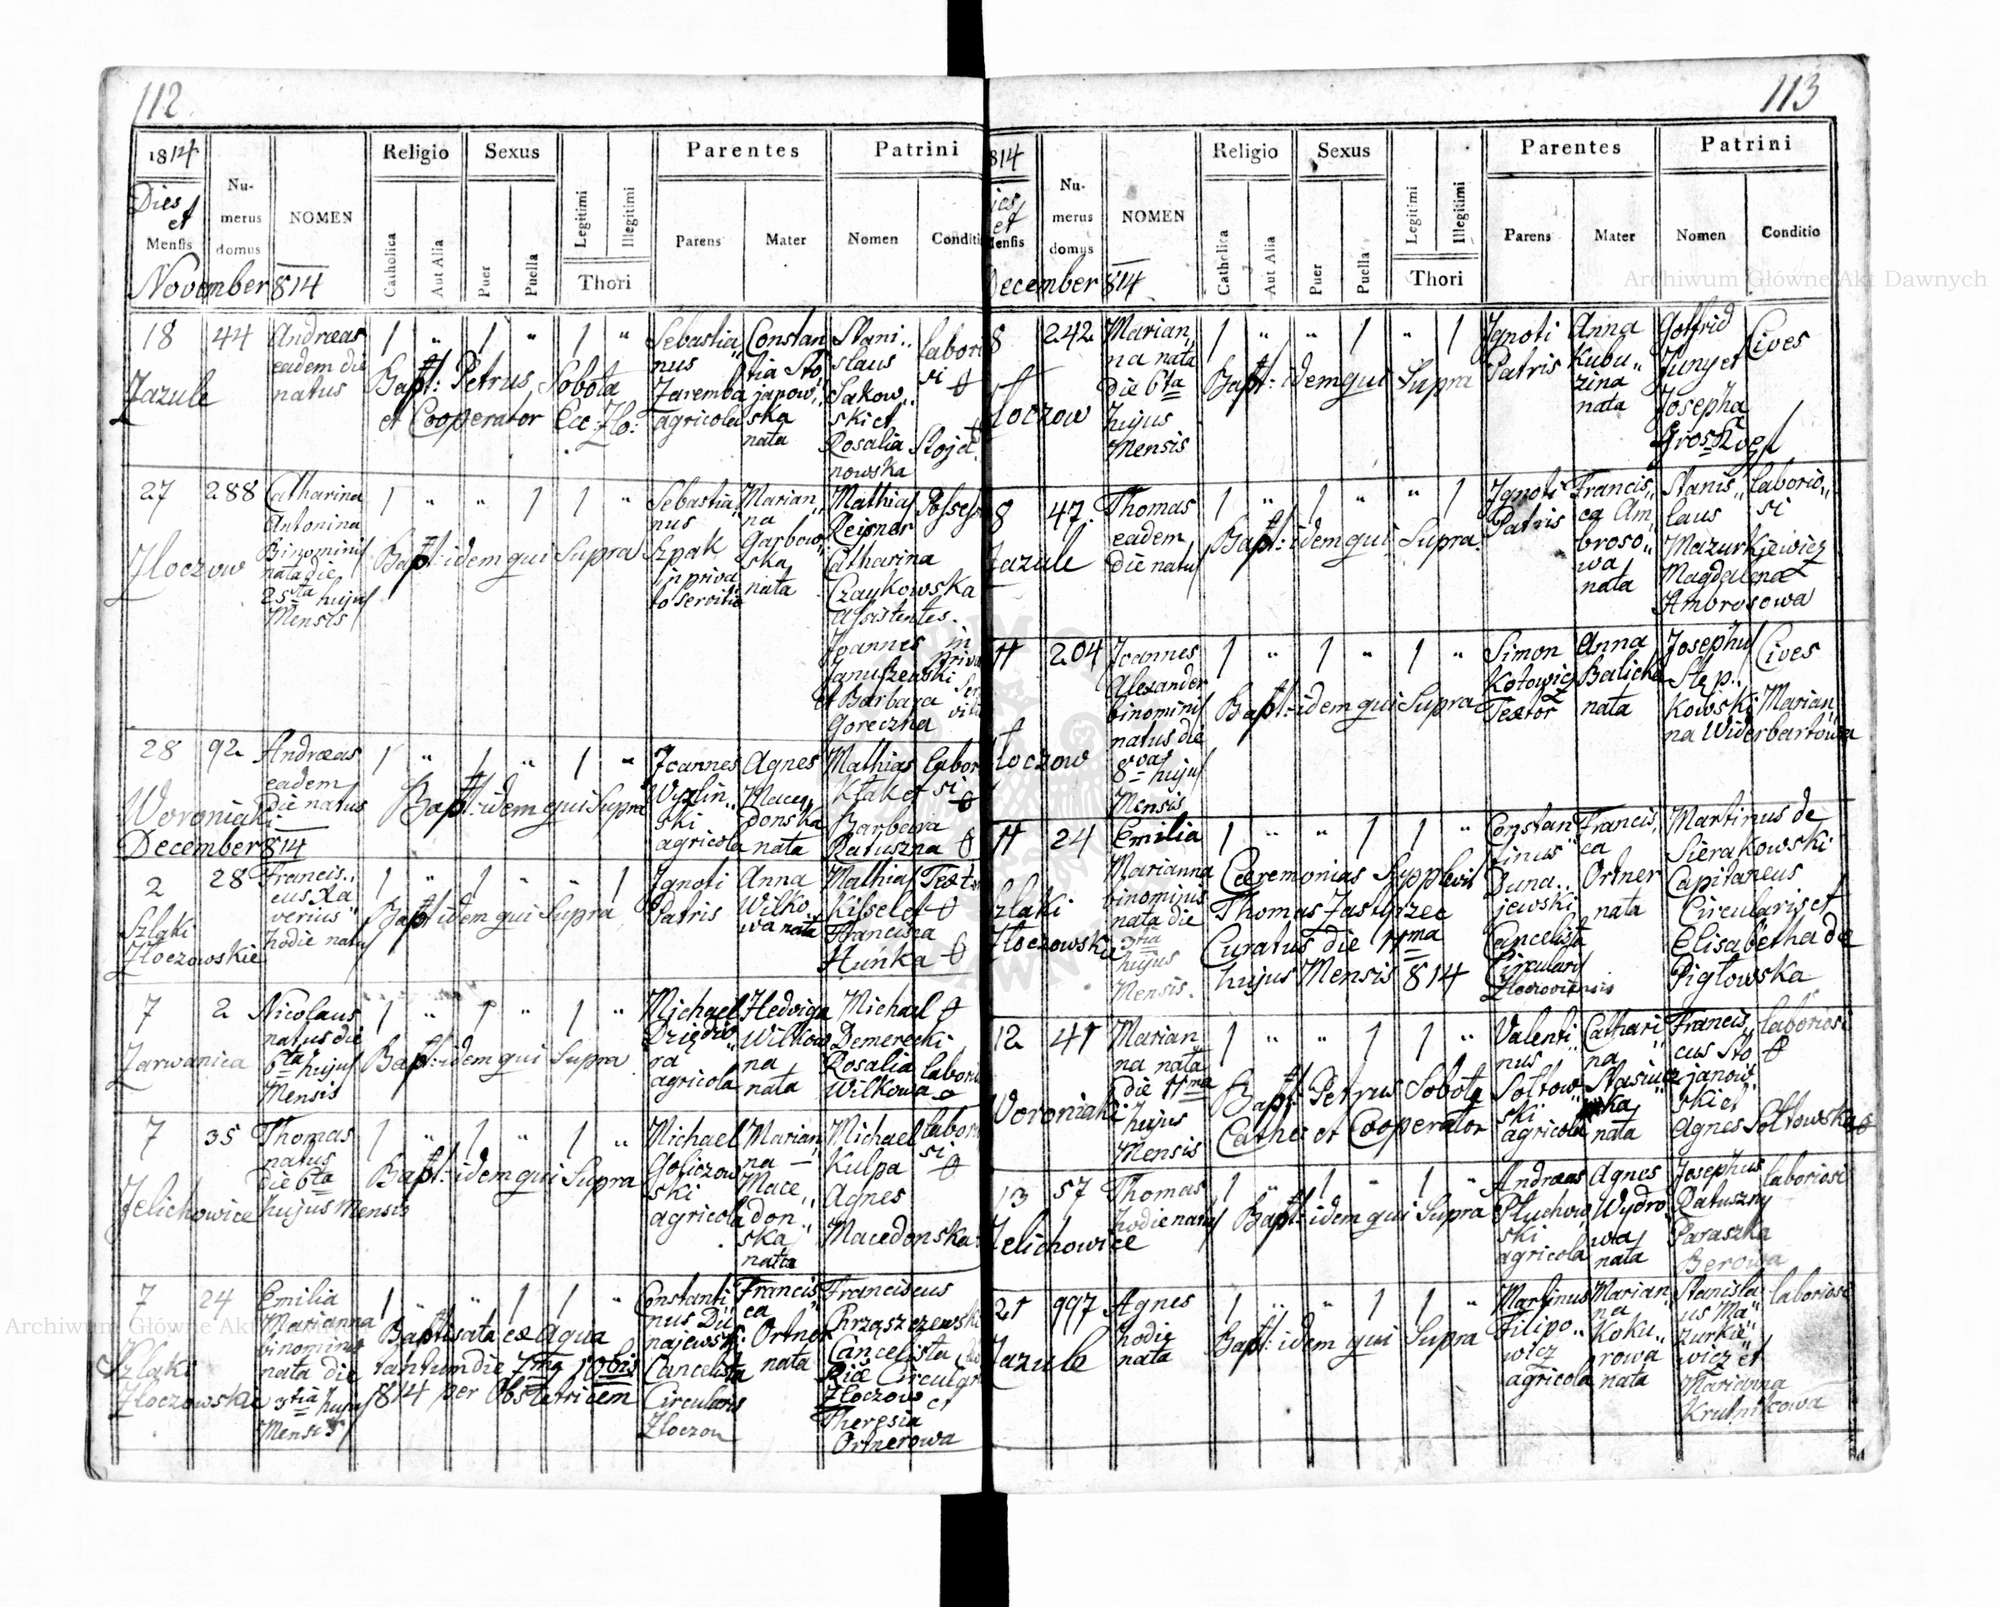 112
1814
Dies et
Mensis
Numerus domus
NOMEN
Religio
Catholica
Aut Alia
Sexus
Puer
Puella
Legitimi
Illegitimi
Thori
Parentes
Parens
Mater
Patrini
Nomen
Conditi
November 814
18
Zazule
44
Andreas
eadem die
natus
1 " 1 " 1 "
Bapt: Petrus Sobota
et Cooperator Ecc: Zło:
Sebastia„
nus
Zaremba
agricola
Constan
tia Sto
janow„
ska
nata
Stani„
slaus
Sakow„
ski et
Rosalia Stoja„
nowska
labori
si
27
Złoczow
288
Catharina
Antonina
Binominis
nata die
25ta hujus
Mensis
1 " " 1 1 "
Bapt: idem qui Supra
Sebastia„
nus
Szpak
in priva
to servitio
Marian„
na
Garbow„
ska
nata
Mathias
Reisner
Catharina
Czaykowska
Assistentes.
Joannes in
Januszewski priva
et Barbara
Goreczna
Possess
28
Woroniaki
92
Andreas
eadem
die natus
1 " 1 " 1 "
Bapt: idem qui Supra
Joannes
ski
agricola
Agnes
Mace„
donska
nata
Mathias
Kłak et
Barbara
Ratuszna
labor
si
December 814
2
Szlaki
Złoczowskie
28
Francis„
cus Xa
verius
hodie natus
1 " 1 " " 1
Bapt: idem qui Supra
Ignoti
Patris
Anna
Wilko
wa nata
Mathias
Kissel et
Francisca
Huńka
Text
7
Zarwanica
2
Nicolaus
natus die
6ta hujus
Mensis
1 " 1 " 1 "
Bapt: idem qui Supra
Michael
ra
agricola
Hedviga
Wilkow
na
nata
Michael
Demerecki
Rosalia
Wilkowa
labori
7
Jelichowice
35
Thomas
natus
die 6ta
hujus Mensis
1 " 1 " 1 "
Bapt: idem qui Supra
Michael
Goliczow
ski
agricola
Marian„
na
Mace„
don„
ska
nata
Michael
Kulpa
Agnes
Macedonska
labori
si
7
Szlaki
Złoczowskie
24
Emilia
Marianna
binominis
nata die
3tia hujus
Mensis
1 " " 1 1 "
Baptisata ex Aqua
tantum die 7ma
814 per Obstetricem
Constanti
nus Du„
najewski
Cancelista
Circularis
Złoczow
Francis„
ca
Ortner
nata
Franciscus
Chrząszczewski
Cancelista
Złoczow et
Theresia
Ortnerowa
113
814
Mensis
Numerus domus
NOMEN
Religio
Catholica
Aut Alia
Sexus
Puer
Puella
Legitimi
Illegitimi
Thori
Parentes
Parens
Mater
Patrini
Nomen
Conditio
December 814
8
Złoczow
242
Marian„
na nata
die 6ta
hujus
Mensis
1 " " 1 " 1
Bapt: idem qui Supra
Ignoti
Patris
Anna
Kubu„
zina
nata
Gotfrid
Juny et
Josepha
Cives
8
Zazule
47
Thomas
eadem
die natus
1 " 1 " " 1
Bapt: idem qui Supra
Ignoti
Patris
Francis„
ca Am„
broso„
wa
nata
Stanis„
laus
Mazurkiewicz
Magdalena
Ambrosowa
laborio„
si
11
Złoczow
204
Joannes
Alexander
binominis
natus die
8va hujus
Mensis
1 " 1 " 1 "
Bapt: idem qui Supra
Simon
Kotowicz
Textor
Anna
Balicka
nata
Josephus
Stęp„
kowski Marian„
na Widerbartowa
Cives
11
Szlaki
Złoczowskie
24
Emilia
Marianna
binominis
nata die
3tia
hujus
Mensis
1 " " 1 1 "
Caeremonias Supplevit
Thomas Jastrzec
Curatus die 11ma
hujus Mensis 814
Constan
tinus
Duna„
jewski
Cancelista
Circularis
Złoczoviensis
Francis„
ca
Ortner
nata
Martinus de
Sierakowski
Capitaneus
Circularis et
Elisabetha de
Pigłowska
12
Woroniaki
41
Marian„
na nata
die 11ma
hujus
Mensis
1 " " 1 1 "
Bapt: Petrus Sobota
Cathec et Cooperator
Valenti
nus
Sołtow„
ski
agricola
Cathari
na
nata
Francis„
cus Sto
janow„
ski et
Agnes Sołtowska
laboriosi
13
Jelichowice
57
Thomas
hodie natus
1 " 1 " 1 "
Bapt: idem qui Supra
Andreas
Pluchow
ski
agricola
Agnes
Wydro
wa
nata
Josephus
Ratuszny
Paraszka
Berowa
laboriosi
21
Zazule
997
Agnes
hodie
nata
1 " " 1 1 "
Bapt: idem qui Supra
Martinus
Filipo„
wicz
agricola
Marian„
na
Koku„
rowa
nata
Stanisla
us Ma„
zurkie„
wicz et
Marianna
Krutnikowa
laboriosi
Archiwum Główne Akt Dawnych
Archiwum Główne Akt Dawnych